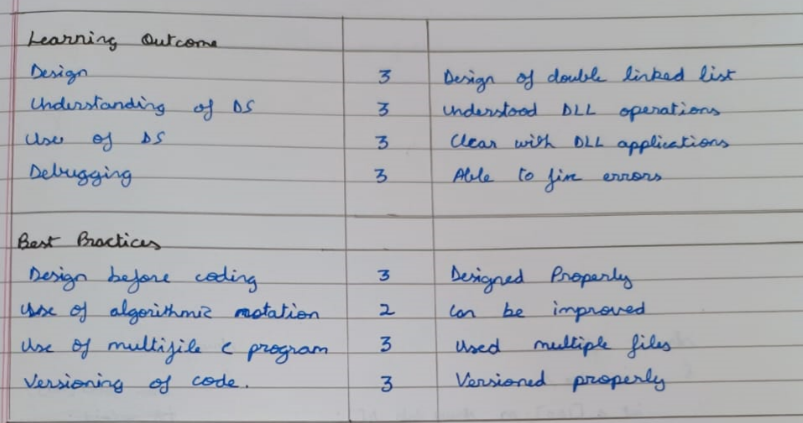 Learning Outcome
Design 3 Design of double linked list
Understanding of DS 3 Understood DLL operations
Use of DS 3 Clear with DLL applications
Debugging 3 Able to fix errors
Best Practices
Design before coding 3 Designed Properly
Use of algorithmic notation 2 Can be improved
Use of multifile C program 3 Used multiple files
Versioning of code. 3 Versioned properly